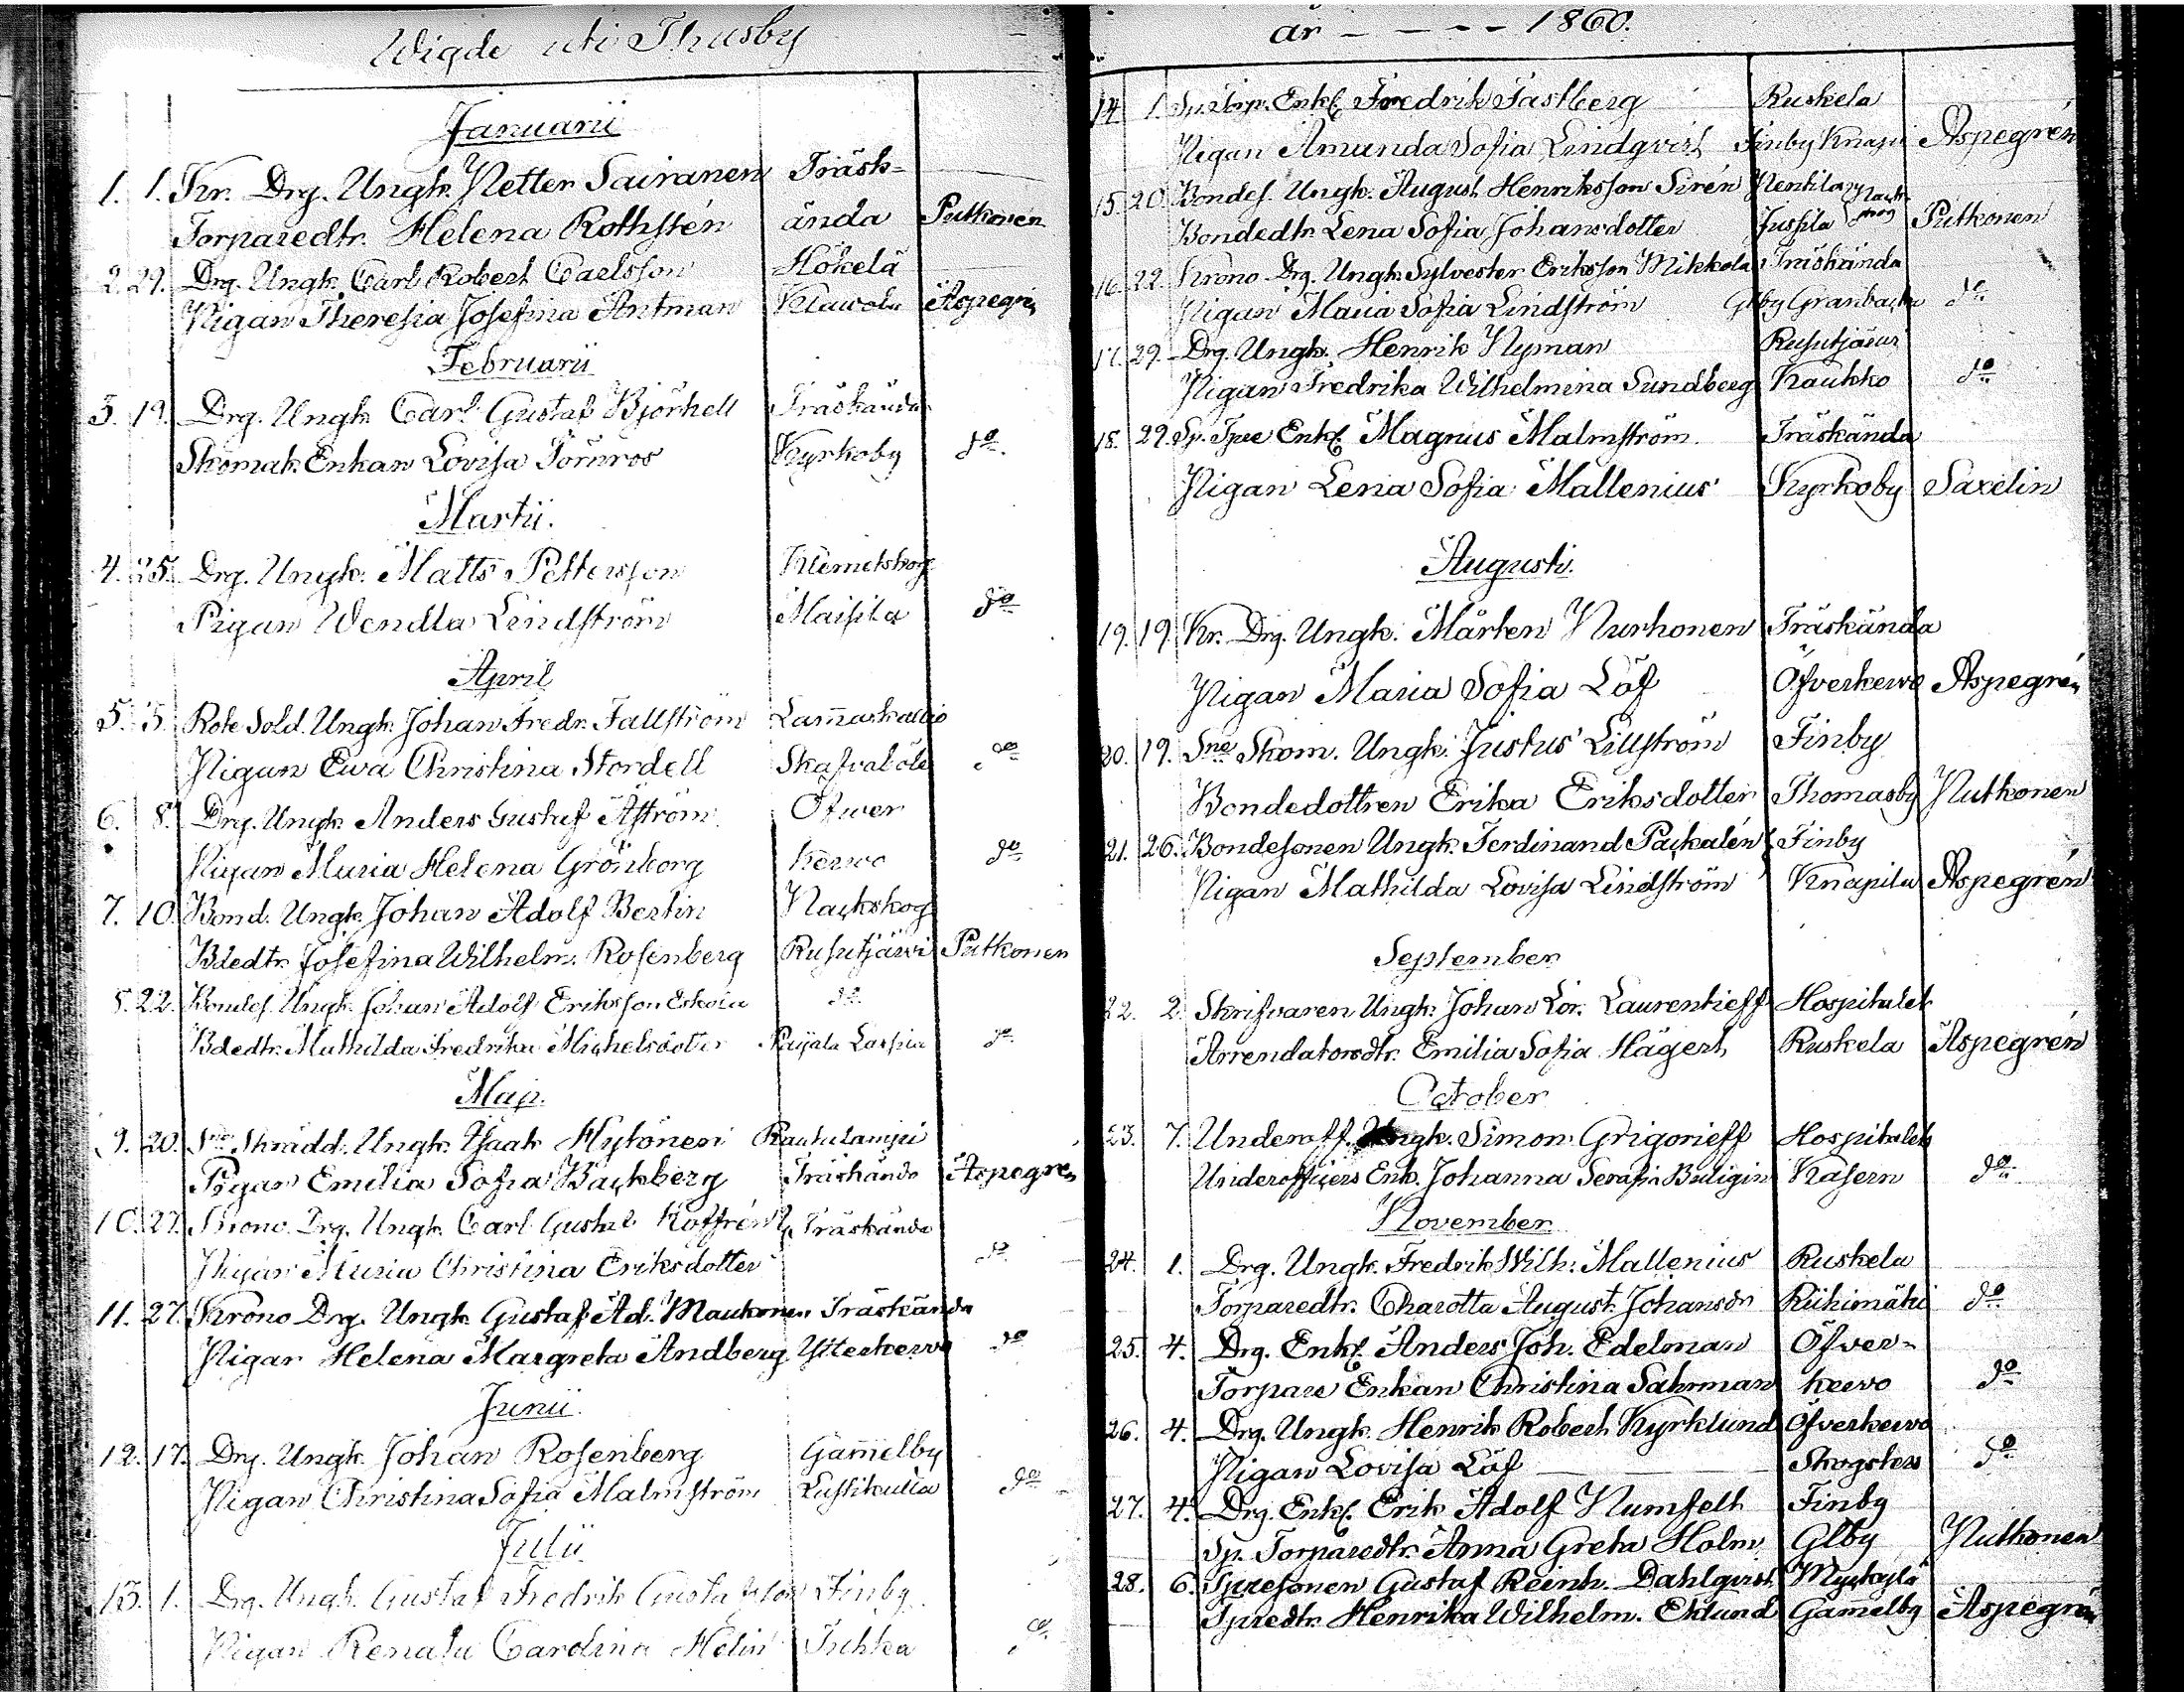 Wigde uti Thusby
Januarii
1. 1. Kr. Drg. Ungk. Petter Sairanen Träsk-
Torparedtr. Helena Rothstén ända Putkonen
2. 29. Drg. Ungk. Carl Robert Carlsson Hökelä
Pigan Theresia Josefina Antman Klawola Aspegrén
Februarii
3. 19. Drg. Ungk. Carl Gustaf Björkell Träskända
Skomak. Enkan Lovisa Törnros Kyrkoby do
Martii.
4. 25. Drg. Ungk. Matts Pettersson Klemetskog
Pigan Wendla Lindström Maisila do
April
5. 5. Rote Sold. Ungk. Johan Fredr. Fallström Lam̄askallio
Pigan Ewa Christina Stordell do
6. 8. Drg. Ungk. Anders Gustaf Åström Öfwer
Pigan Maria Helena Grönborg Kerwo do
7. 10. Bond. Ungk. Johan Adolf Berlin Nackskog
Bdedtr. Josefina Wilhelm. Rosenberg Rusutjärwi Putkonen
8. 22. Bondes. Ungk. Johan Adolf Eriksson Eskola do
Bdedtr. Mathilda Fredrika Michelsdotter Paijala do
Maji.
9. 20. Sne Skrädd. Ungk. Isaak Hytönen Rautulampi
Pigan Emilia Sofia Backberg Träskända Aspegrén
10. 27. Krono Drg. Ungk. Carl Gustaf Koffrén Träskända
Pigan Maria Christina Eriksdotter do
11. 27. Krono Drg. Ungk. Gustaf Ad. Maukonen Träskända
Pigan Helena Margreta Andberg Ytterkerwo do
Junii.
12. 17. Drg. Ungk. Johan Rosenberg Gam̄elby
Pigan Christina Sofia Malmström Lustikulla do
Julii
13. 1. Drg. Ungk. Gustaf Fredrik Gustafsson Finby
Pigan Renata Carolina Helin Tuhka do
år - - - - 1860.
14. 1. Enkl. Fredrik Fastberg Ruskela
Pigan Amanda Sofia Lindqvist Finby Knapi Aspegrén
15. 20. Bondes. Ungk. August Henriksson Sirén Pentila Nackskog
Bondedtr. Lena Sofia Johansdotter Jussila Putkonen
16. 22. Krono Drg. Ungk. Sylvester Eriksson Mikkola Träskända
Pigan Maria Sofia Lindström Glby Granbacka do
17. 29. Drg. Ungk. Henrik Nyman Rusutjärwi
Pigan Fredrika Wilhelmina Sundberg Kaukko do
18. 29. Sp. Tpre Enkl. Magnus Malmström Träskända
Pigan Lena Sofia Mallenius Kyrkoby Saxelin
Augusti.
19. 19. Kr. Drg. Ungk. Mårten Nurhonen Träskända
Pigan Maria Sofia Löf Öfverkerwo Aspegrén
20. 19. Sne Skom. Ungk. Justus Lillström Finby
Bondedottren Erika Eriksdotter Thomasby Putkonen
21. 26. Bondesonen Ungk. Ferdinand Packalén Finby
Pigan Mathilda Lovisa Lindström Knapila Aspegrén
September
22. 2. Skrifvaren Ungk. Johan Lor. Laurentieff Hospitalet
Arrendatorsdtr. Emilia Sofia Hägert Ruskela Aspegrén
October
23. 7. Underoff. Ungk. Simon Grigorieff Hospitalets
Underofficers Enk. Johanna Serafia Bidigin Kasern do
November
24. 1. Drg. Ungk. Fredrik Wilh. Mallenius Ruskela
Torparedtr. Charotta August. Johansdr Riihimäki do
25. 4. Drg. Enkl. Anders Joh. Edelman Öfver-
Torpare Enkan Christina Sahrman kerwo do
26. 4. Drg. Ungk. Henrik Robert Kyrklund Öfverkerwo
Pigan Lovisa Löf Skogsters do
27. 4. Drg. Enkl. Erik Adolf Numfelt Finby
Sp. Torparedtr. Anna Greta Holm Glby Putkonen
28. 6. Tpresonen Gustaf Reinh. Dahlqvist Myckylä
Tpredtr. Henrika Wilhelm. Eklund Gam̄elby Aspegrén